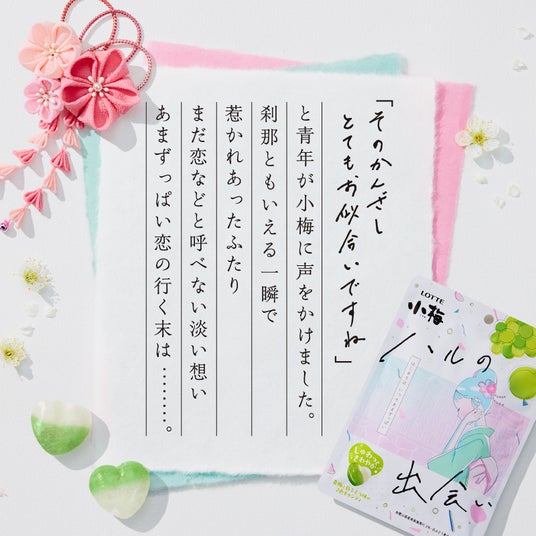 「そのかんざし
とてもお似合いですね」
と青年が小梅に声をかけました。
刹那ともいえる一瞬で
惹かれあったふたり
まだ恋などと呼べない淡い想い
あまずっぱい恋の行く末は………。
LOTTE
小梅
ハルの
出会い
しゅわっと